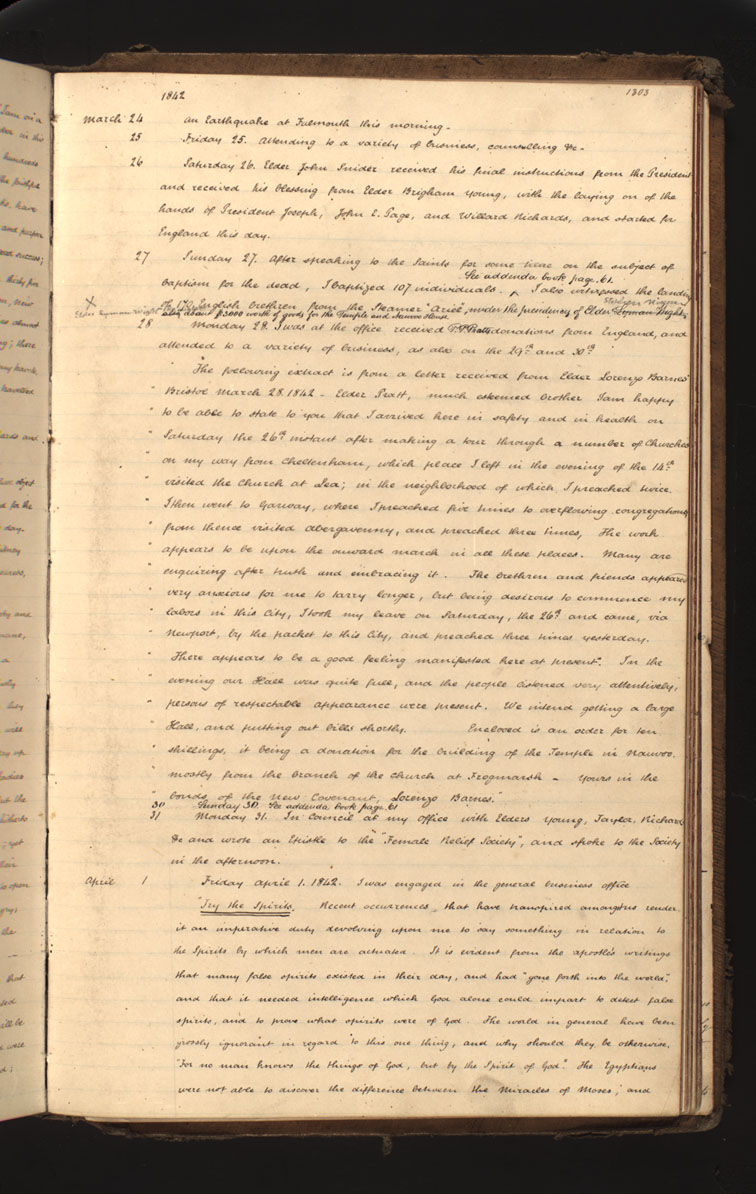 1842
1303
March 24 an Earthquake at Falmouth this morning.
25 Friday 25. Attending to a variety of business, counselling &c.
26 Saturday 26. Elder John Snider received his final instructions from the President
and received his blessing from Elder Brigham Young, with the laying on of the
hands of President Joseph, John E. Page, and Willard Richards, and started for
England this day.
27 Sunday 27. After speaking to the Saints for some time on the subject of
See addenda book page 61.
baptism for the dead, I baptized 107 individuals. ^ I also witnessed the landing
of 170 English brethren from the Steamer "Ariel", under the presidency of Elder Lyman Wight,
also about $3000 worth of goods for the Temple and Nauvoo House
28 Monday 28. I was at the office received P. P. Pratt's donations from England, and
attended to a variety of business, as also on the 29th and 30th
"The following extract is from a letter received from Elder Lorenzo Barnes"
" Bristol March 28. 1842 - Elder Pratt, much esteemed brother I am happy
" to be able to state to you that I arrived here in safety and in health on
" Saturday the 26th instant after making a tour through a number of Churches
" on my way from Cheltenham, which place I left in the evening of the 14th
" visited the Church at Lea; in the neighborhood of which I preached twice.
" I then went to Garway, where I preached five times to overflowing congregations
" from thence visited Abergavenny, and preached three times, The work
" appears to be upon the onward march in all these places. Many are
" enquiring after truth and embracing it. The brethren and friends appeared
" very anxious for me to tarry longer, but being desirous to commence my
" labors in this City, I took my leave on Saturday, the 26th and came, via
" Newport, by the packet to this City, and preached three times yesterday.
" There appears to be a good feeling manifested here at present. In the
" evening our Hall was quite full, and the people listened very attentively,
" persons of respectable appearance were present. We intend getting a large
" Hall, and putting out bills shortly. Enclosed is an order for ten
" shillings, it being a donation for the building of the Temple in Nauvoo.
" mostly from the branch of the church at Frogmarsh - Yours in the
" bonds of the New Covenant, Lorenzo Barnes."
30 Sunday 30. See addenda book page 61
31 Monday 31. In Council at my office with Elders Young, Taylor, Richards
&c and wrote an Epistle to the "Female Relief Society", and spoke to the Society
in the afternoon.
April 1 Friday April 1. 1842. I was engaged in the general business office
"Try the Spirits. Recent occurrences that have transpired amongst us render
it an imperative duty devolving upon me to say something in relation to
the Spirits by which men are actuated. It is evident from the apostle's writings
that many false spirits existed in their day, and had "gone forth into the world",
and that it needed intelligence which God alone could impart to detect false
spirits, and to prove what spirits were of God. The world in general have been
grossly ignorant in regard to this one thing, and why should they be otherwise,
"For no man knows the things of God, but by the Spirit of God". The Egyptians
were not able to discover the difference between the Miracles of Moses, and